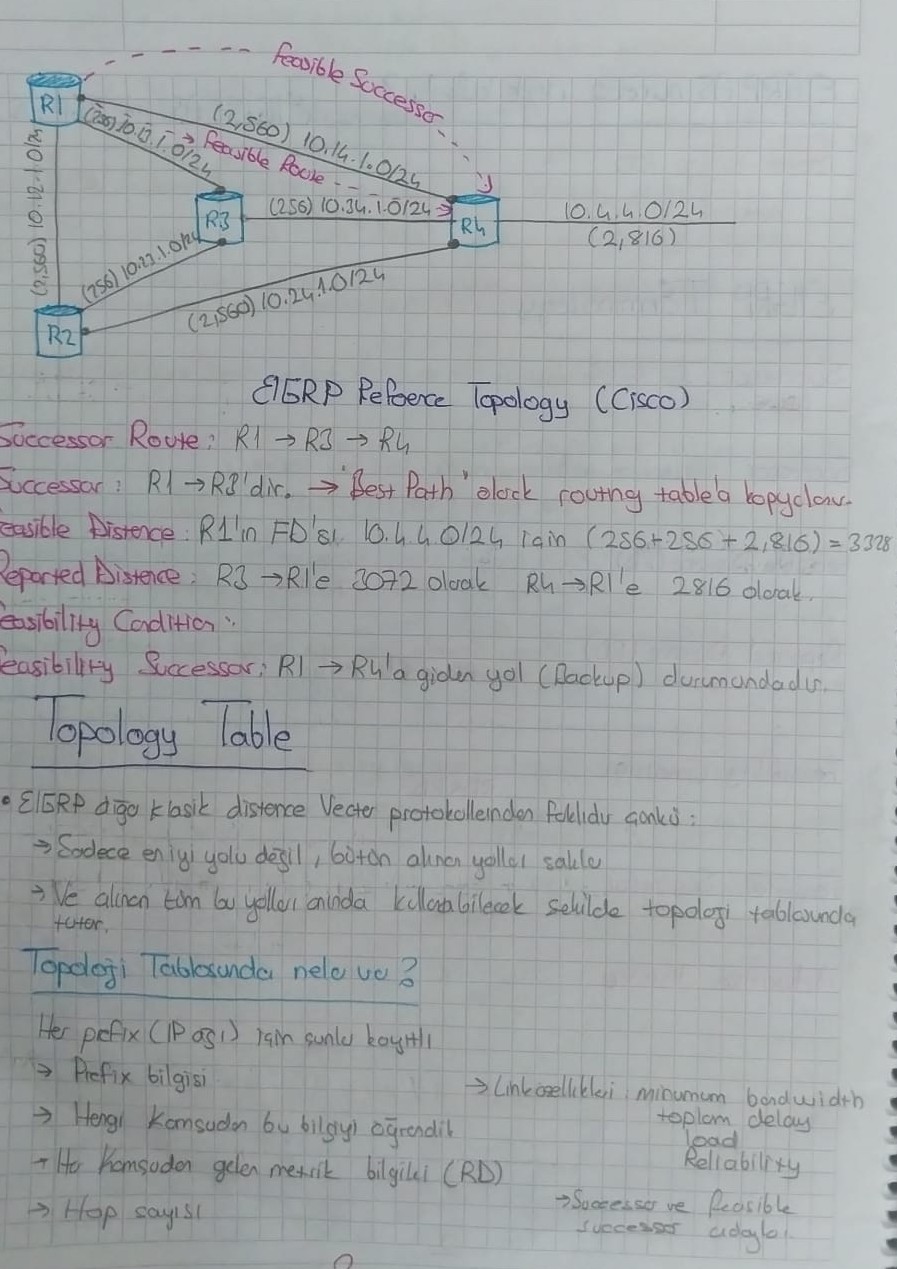 Feasible Successor
R1
(2,560) 10.14.1.0/24
(256) 10.13.1.0/24
→ Feasible Route
(2,560) 10.12.1.0/24
R3
(256) 10.34.1.0/24
R4
10.4.4.0/24
(2,816)
(256) 10.23.1.0/24
(2,560) 10.24.1.0/24
R2
EIGRP Referece Topology (Cisco)
Successor Route: R1 → R3 → R4
Successor: R1 → R3'dir. → "Best Path" olarak routing table'a kopyalanır.
easible Distence: R1'in FD'si 10.4.4.0/24 için (256+256+2,816) = 3328
Reported Distence: R3 → R1'e 3072 olarak R4 → R1'e 2816 olarak.
easibility Condition:
easibility Successor: R1 → R4'a giden yol (Backup) durumundadır.
Topology Table
• EIGRP diğer klasik distence Vector protokollerinden farklıdır çünkü:
→ Sadece en iyi yolu değil, bütün alınan yolları saklar
→ Ve alınan tüm bu yolları anında kullanabilecek şekilde topoloji tablosunda
tutar.
Topoloji Tablosunda neler var?
Her prefix (IP ağı) için şunlar kayıtlı
→ Prefix bilgisi
→ Link özellikleri: minumum bandwidth
toplam delay
load
Reliability
→ Hangi Komşudan bu bilgiyi öğrendik
→ Her Komşudan gelen metrik bilgileri (RD)
→ Hop sayısı
→ Successor ve feasible
successor adayları